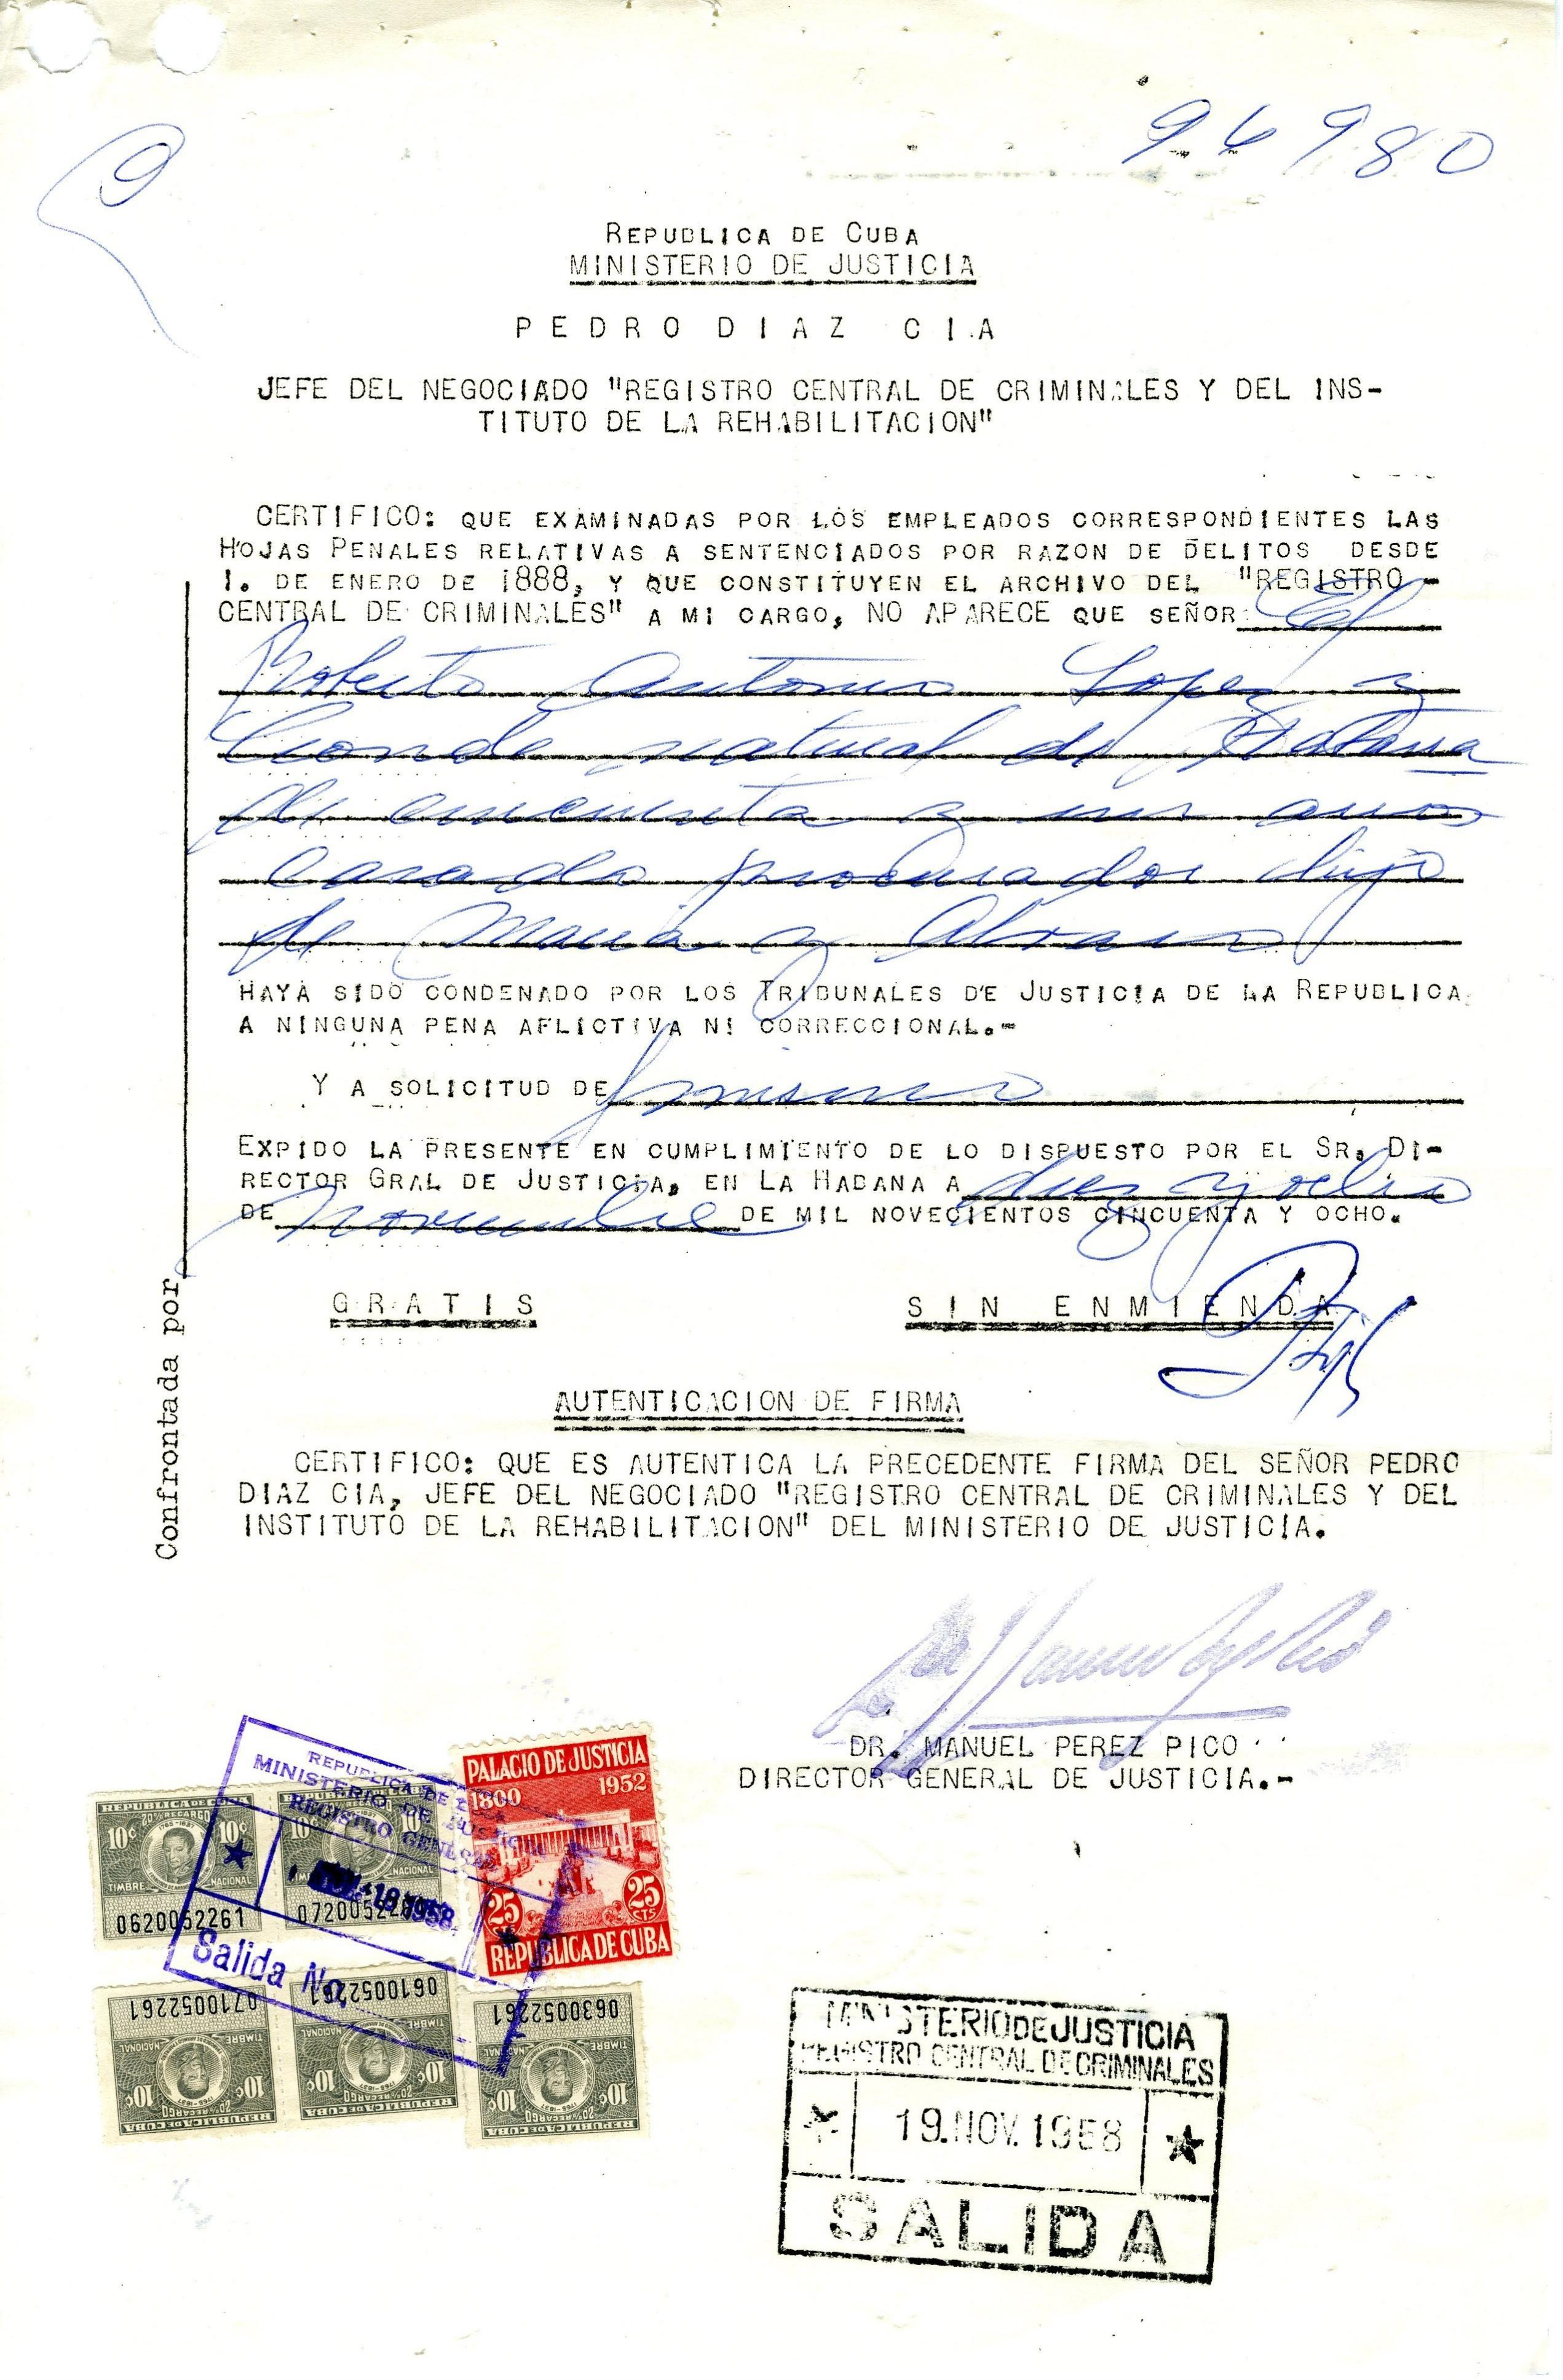 96980
9
REPUBLICA DE CUBA
MINISTERIO DE JUSTICIA
PEDRO DIAZ CIA
JEFE DEL NEGOCIADO "REGISTRO CENTRAL DE CRIMINALES Y DEL INS-
TITUTO DE LA REHABILITACION"
CERTIFICO: QUE EXAMINADAS POR LOS EMPLEADOS CORRESPONDIENTES LAS
HOJAS PENALES RELATIVAS A SENTENCIADOS POR RAZON DE DELITOS DESDE
1. DE ENERO DE 1888, Y QUE CONSTITUYEN EL ARCHIVO DEL "REGISTRO -
CENTRAL DE CRIMINALES" A MI CARGO, NO APARECE QUE SEÑOR El
Roberto Antonio Lopez y
Conde natural de Habana
de cincuenta y un años
casado procurador hijo
de Maria y Alvaro
HAYA SIDO CONDENADO POR LOS TRIBUNALES DE JUSTICIA DE LA REPUBLICA
A NINGUNA PENA AFLICTIVA NI CORRECCIONAL.-
Y A SOLICITUD DE mismo
EXPIDO LA PRESENTE EN CUMPLIMIENTO DE LO DISPUESTO POR EL SR. DI-
RECTOR GRAL DE JUSTICIA, EN LA HABANA A diez y ocho
DE Noviembre DE MIL NOVECIENTOS CINCUENTA Y OCHO.
GRATIS SIN ENMIENDA
Confrontada por
AUTENTICACION DE FIRMA
CERTIFICO: QUE ES AUTENTICA LA PRECEDENTE FIRMA DEL SEÑOR PEDRO
DIAZ CIA, JEFE DEL NEGOCIADO "REGISTRO CENTRAL DE CRIMINALES Y DEL
INSTITUTO DE LA REHABILITACION" DEL MINISTERIO DE JUSTICIA.
DR. MANUEL PEREZ PICO
DIRECTOR GENERAL DE JUSTICIA.-
REPUBLICA DE
MINISTERIO DE JUSTICIA
REGISTRO GENERAL
18 1958
Salida No.
PALACIO DE JUSTICIA
1800 1952
25 25
CTS
REPUBLICA DE CUBA
REPUBLICA DE CUBA
20% RECARGO
10¢ 10¢
TIMBRE NACIONAL
0620052261
10¢ 10
0710052261
TIMBRE NACIONAL
10¢ 10¢
20% RECARGO
REPUBLICA DE CUBA
0610052261
TIMBRE NACIONAL
10¢ 10¢
20% RECARGO
REPUBLICA DE CUBA
0630052261
TIMBRE NACIONAL
10¢ 10¢
20% RECARGO
REPUBLICA DE CUBA
MINISTERIO DE JUSTICIA
REGISTRO CENTRAL DE CRIMINALES
19.NOV.1958
SALIDA